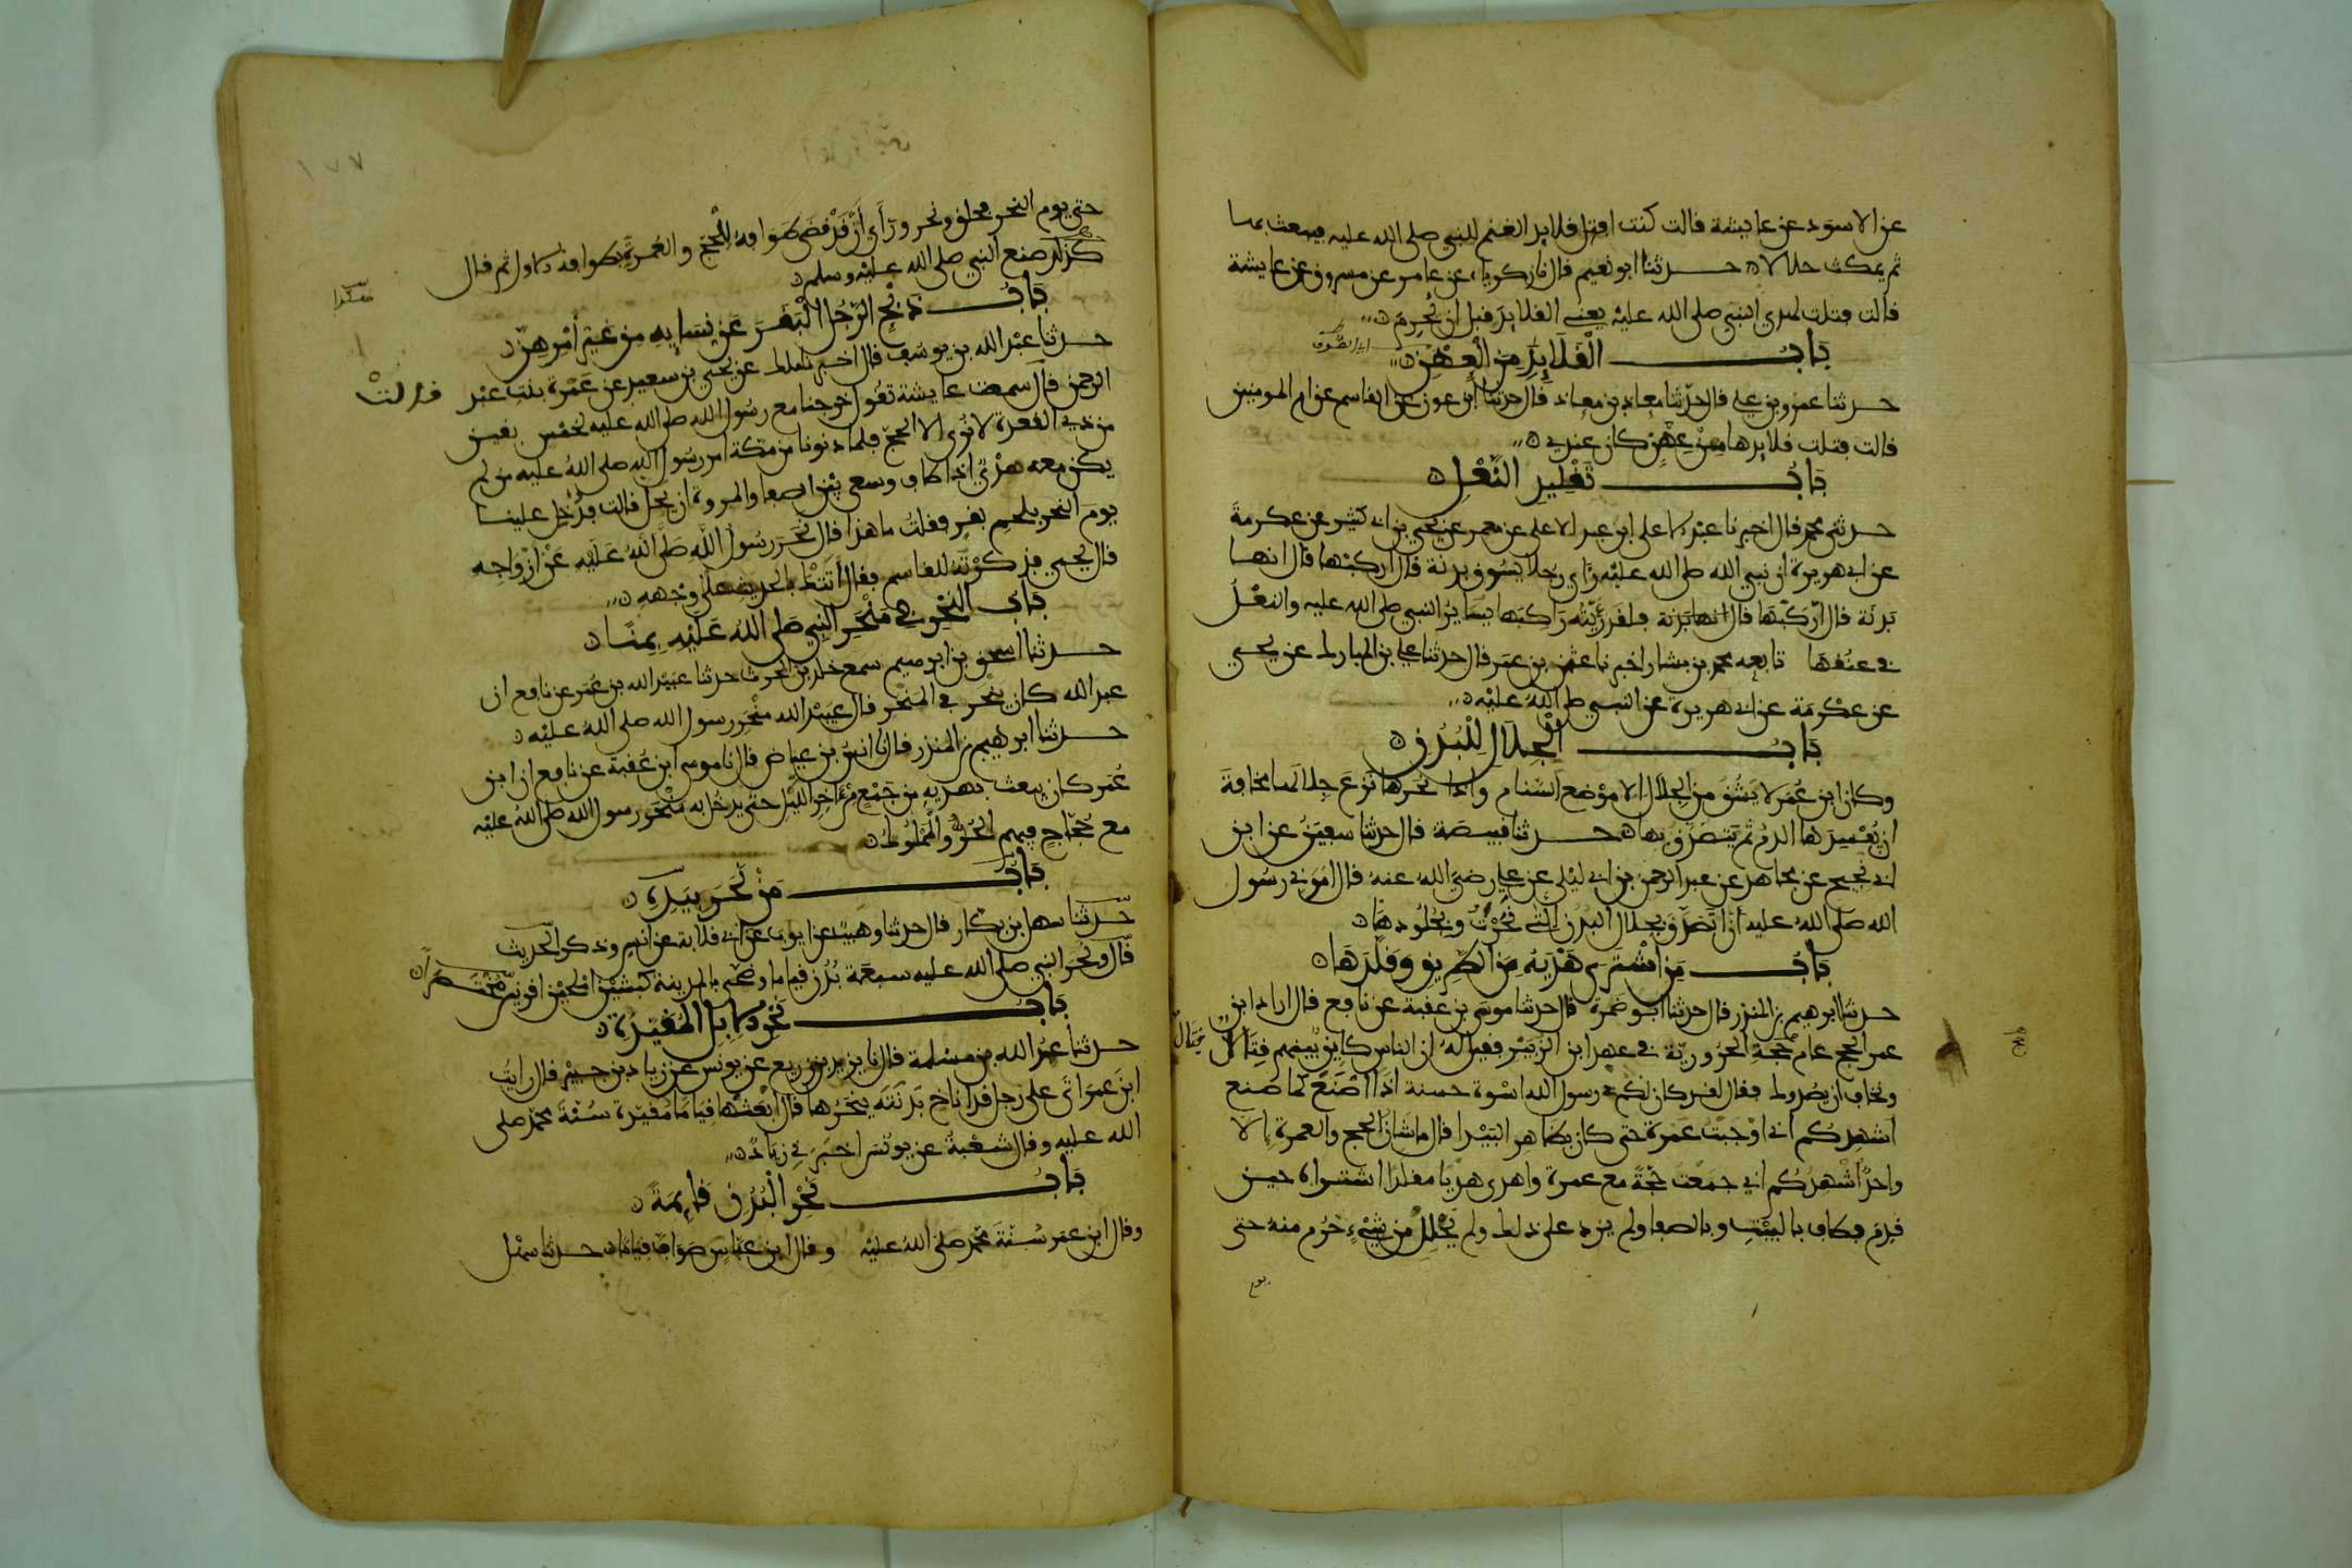 عن الاسود عن عايشة قالت كنت افتل قلايد الغنم للنبي صلى الله عليه فيبعث بها
ثم يمكث حلالا حدثنا ابو نعيم قال نا زكرياء عن عامر عن مسروق عن عايشة
قالت فتلت لهدي النبي صلى الله عليه يعني القلايد قبل ان يحرم
باب القلايد من العهن
اي الصوف
حدثنا عمرو بن علي قال حدثنا معاذ بن معاذ قال حدثنا ابن عون عن القاسم عن ام المومنين
قالت فتلت قلايدها من عهن كان عندي
باب تقليد النعل
حدثني محمد قال اخبرنا عبد الاعلى ابن عبد الاعلى عن معمر عن يحيى بن ابي كثير عن عكرمة
عن ابي هريرة ان نبي الله صلى الله عليه رأى رجلا يسوق بدنة قال اركبها قال انها
بدنة قال اركبها قال انها بدنة فلقد رأيته راكبها يساير النبي صلى الله عليه والنعل
في عنقها تابعه محمد بن بشار اخبرنا عثمن بن عمر قال حدثنا علي بن المبارك عن يحيى
عن عكرمة عن ابي هريرة عن النبي صلى الله عليه
باب الجلال للبدن
وكان ابن عمر لا يشق من الجلال الا موضع السنام واذا نحرها نزع جلالها مخافة
ان يفسدها الدم ثم يتصدق بها حدثنا قبيصة قال حدثنا سفين عن ابن
ابي نجيح عن مجاهد عن عبد الرحمن بن ابي ليلى عن علي رضي الله عنه قال امرني رسول
الله صلى الله عليه ان اتصدق بجلال البدن التي نحرت وبجلودها
باب من اشترى هديه من الطريق وقلدها
حدثنا ابرهيم بن المنذر قال حدثنا ابو ضمرة قال حدثنا موسى بن عقبة عن نافع قال اراد ابن
عمر الحج عام حجة الحرورية في عهد ابن الزبير فقيل له ان الناس كاين بينهم قتال
ونخاف ان يصدوك فقال لقد كان لكم في رسول الله اسوة حسنة اذا اصنع كما صنع
اشهدكم اني اوجبت عمرة حتى كان بظاهر البيدا قال ما شان الحج والعمرة الا
واحد اشهدكم اني جمعت حجة مع عمرة واهدى هديا مقلدا اشتراه حين
قدم فطاف بالبيت وبالصفا ولم يزد على ذلك ولم يحلل من شيء حرم منه حتى
يوم
١٧٧
حتى يوم النحر فحلق ونحر ورأى أن قد قضى طوافه للحج والعمرة بطوافه الاول ثم قال
كذلك صنع النبي صلى الله عليه وسلم
باب ذبح الرجل البقر عن نسايه من غير امرهن
حدثنا عبد الله بن يوسف قال اخبرنا ملك عن يحيى بن سعيد عن عمرة بنت عبد
الرحمن قال سمعت عايشة تقول خرجنا مع رسول الله صلى الله عليه لخمس بقين
قالت
من ذي القعدة لا نرى الا الحج فلما دنونا من مكة امر رسول الله صلى الله عليه من لم
يكن معه هدي اذا طاف وسعى بين الصفا والمروة ان يحل قالت فدخل علينا
يوم النحر بلحم بقر فقلت ما هذا قال نحر رسول الله صلى الله عليه عن ازواجه
قال يحيى فذكرته للقاسم فقال اتتك بالحديث على وجهه
باب النحر في منحر النبي صلى الله عليه بمنا
حدثنا اسحق بن ابرهيم سمع خلد بن الحرث حدثنا عبيد الله بن عمر عن نافع ان
عبد الله كان ينحر في المنحر قال عبيد الله منحر رسول الله صلى الله عليه
حدثنا ابرهيم بن المنذر قال نا انس بن عياض قال نا موسى ابن عقبة عن نافع ان ابن
عمر كان يبعث بهديه من جمع من ءاخر الليل حتى يدخل به منحر رسول الله صلى الله عليه
مع حجاج فيهم الحر والمملوك
باب من نحر بيده
حدثنا سهل بن بكار قال حدثنا وهيب عن ايوب عن ابي قلابة عن انس وذكر الحديث
قال ونحر النبي صلى الله عليه سبعة بدن قياما وضحى بالمدينة كبشين املحين اقرنين مختصرا
باب نحر الابل المقيدة
حدثنا عبد الله بن مسلمة قال نا يزيد بن زريع عن يونس عن زياد بن جبير قال رايت
ابن عمر اتى على رجل قد اناخ بدنته ينحرها قال ابعثها قياما مقيدة سنة محمد صلى
الله عليه وقال شعبة عن يونس اخبرني زياد
باب نحر البدن قايمة
وقال ابن عمر سنة محمد صلى الله عليه وقال ابن عباس صواف قياما حدثنا سهل